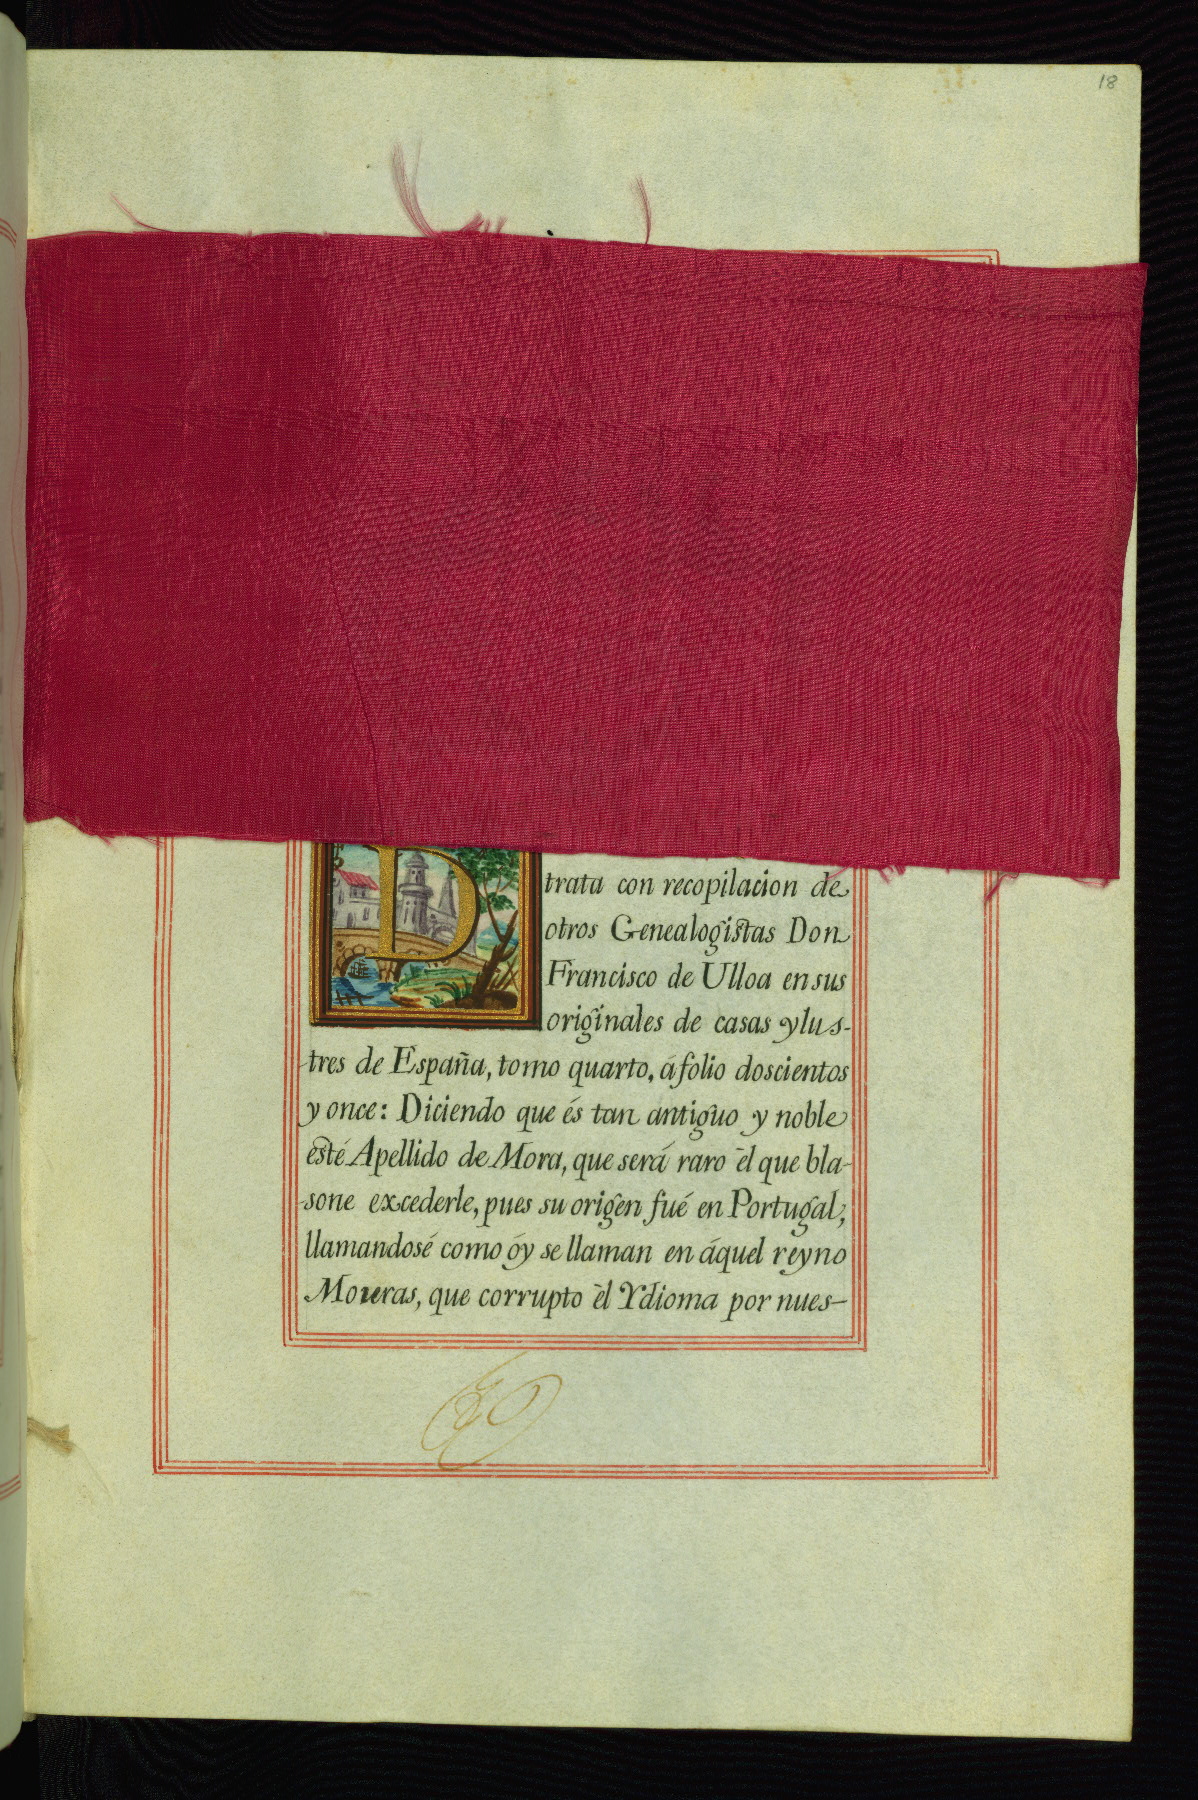 18
D
trata con recopilacion de
otros Genealogistas Don
Francisco de Ulloa en sus
originales de casas ylus-
tres de España, tomo quarto, á folio doscientos
y once: Diciendo que és tan antiguo y noble
esté Apellido de Mora, que será raro èl que bla-
sone excederle, pues su origen fué en Portugal,
llamandosé como óy se llaman en áquel reyno
Moreras, que corrupto èl Ydioma por nues-